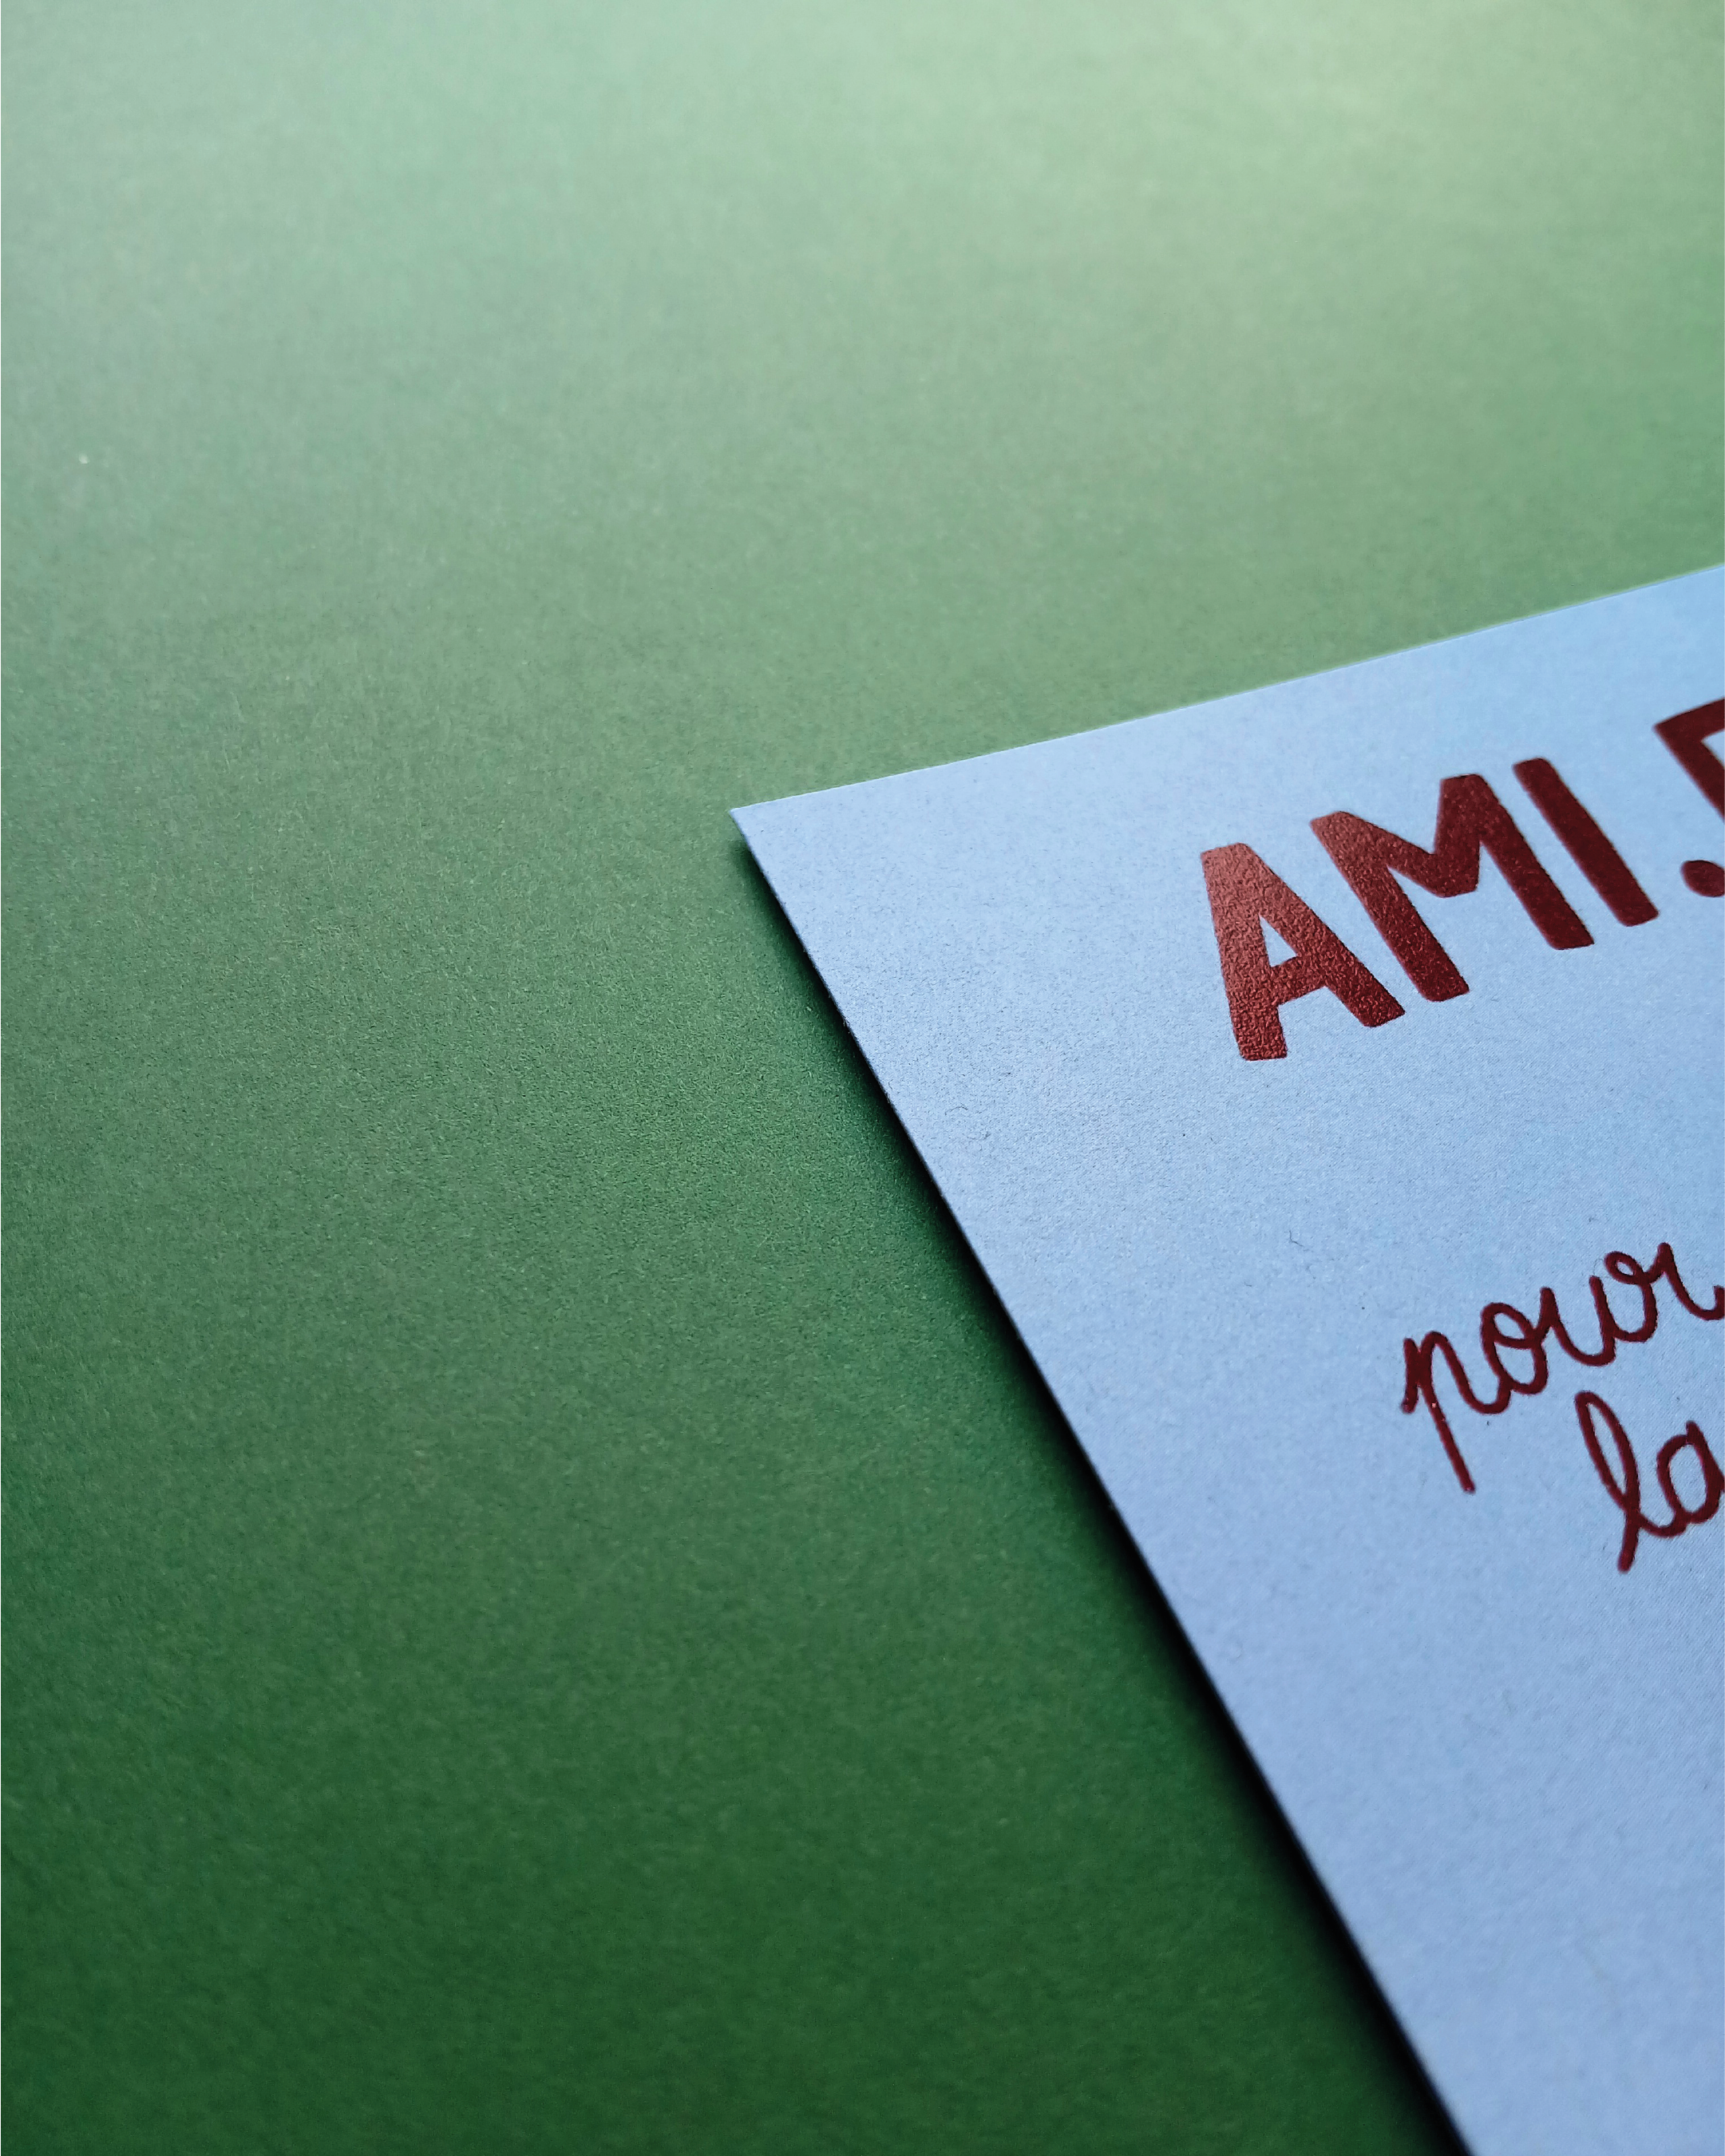 AMI.
pour
la